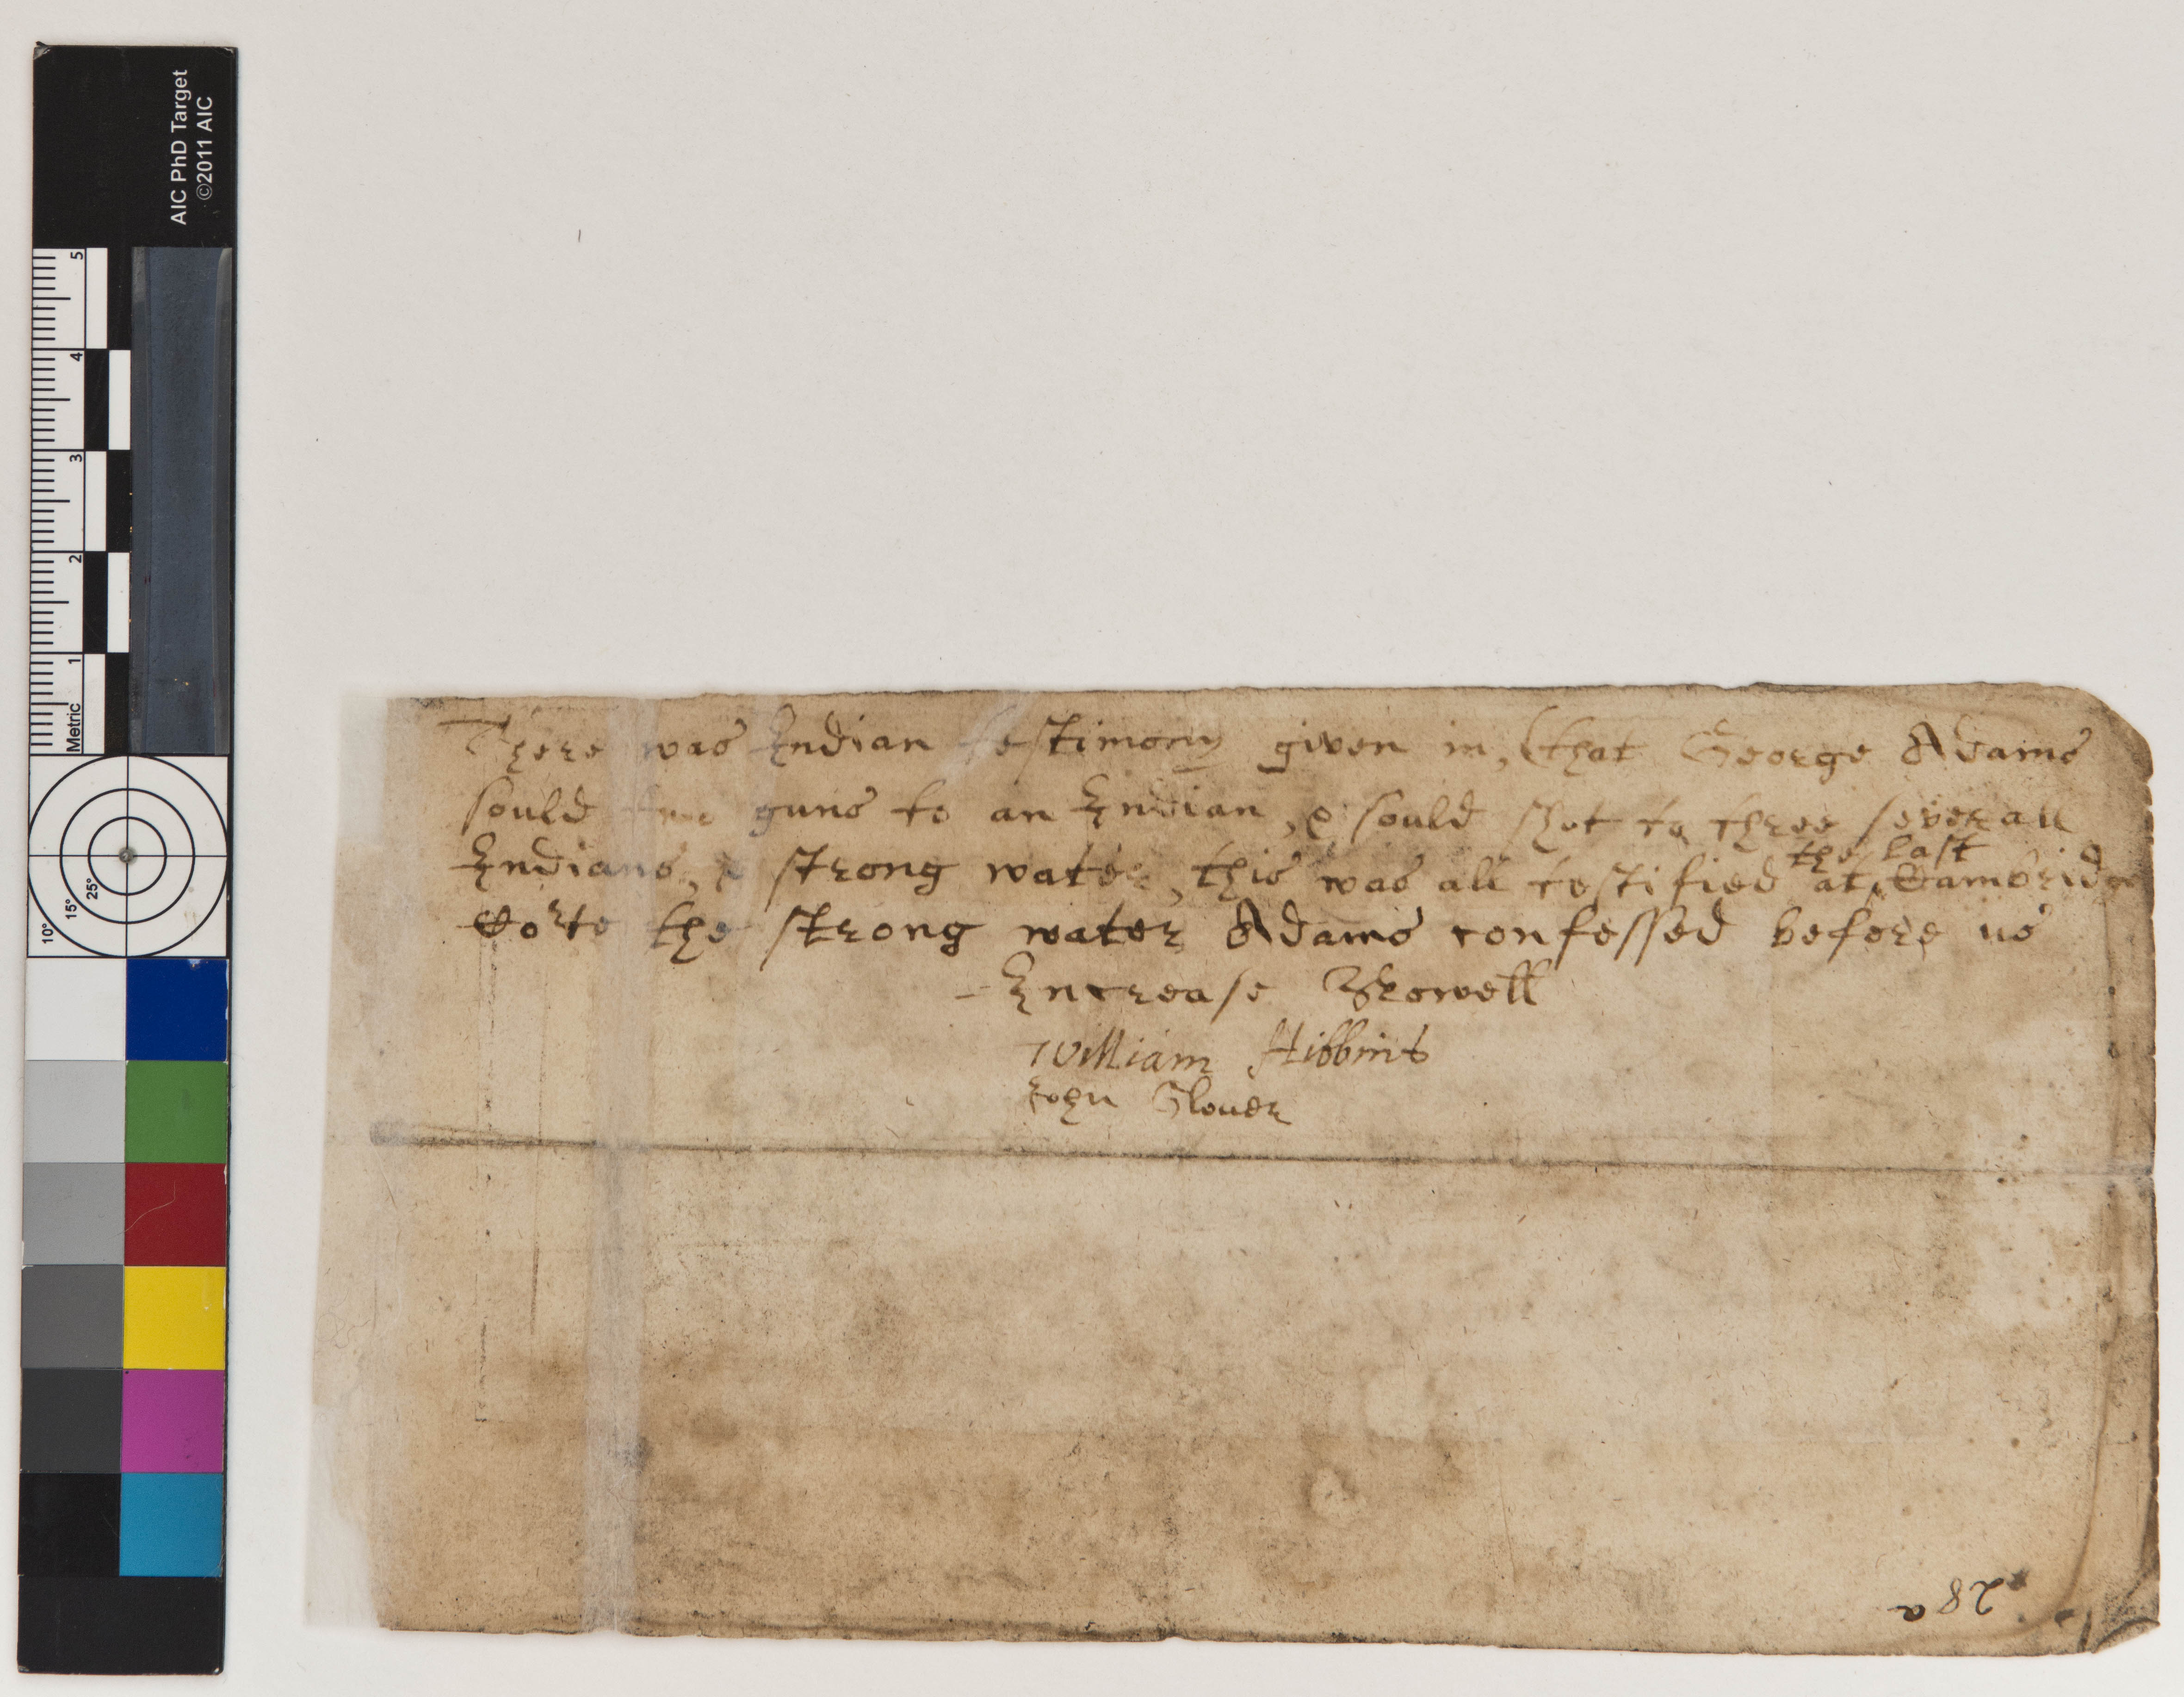 AIC PhD Target
©2011 AIC
5
4
3
2
1
Metric
10° 15° 25°
There was Indian testimony given in, that George Adams
sould two guns to an Indian, & sould shot to three severall
the last
Indians, & strong water, this was all testified at Cambridg
Corte the strong water Adams confessed before us
Increase Nowell
William Hibbins
John Glover
28a